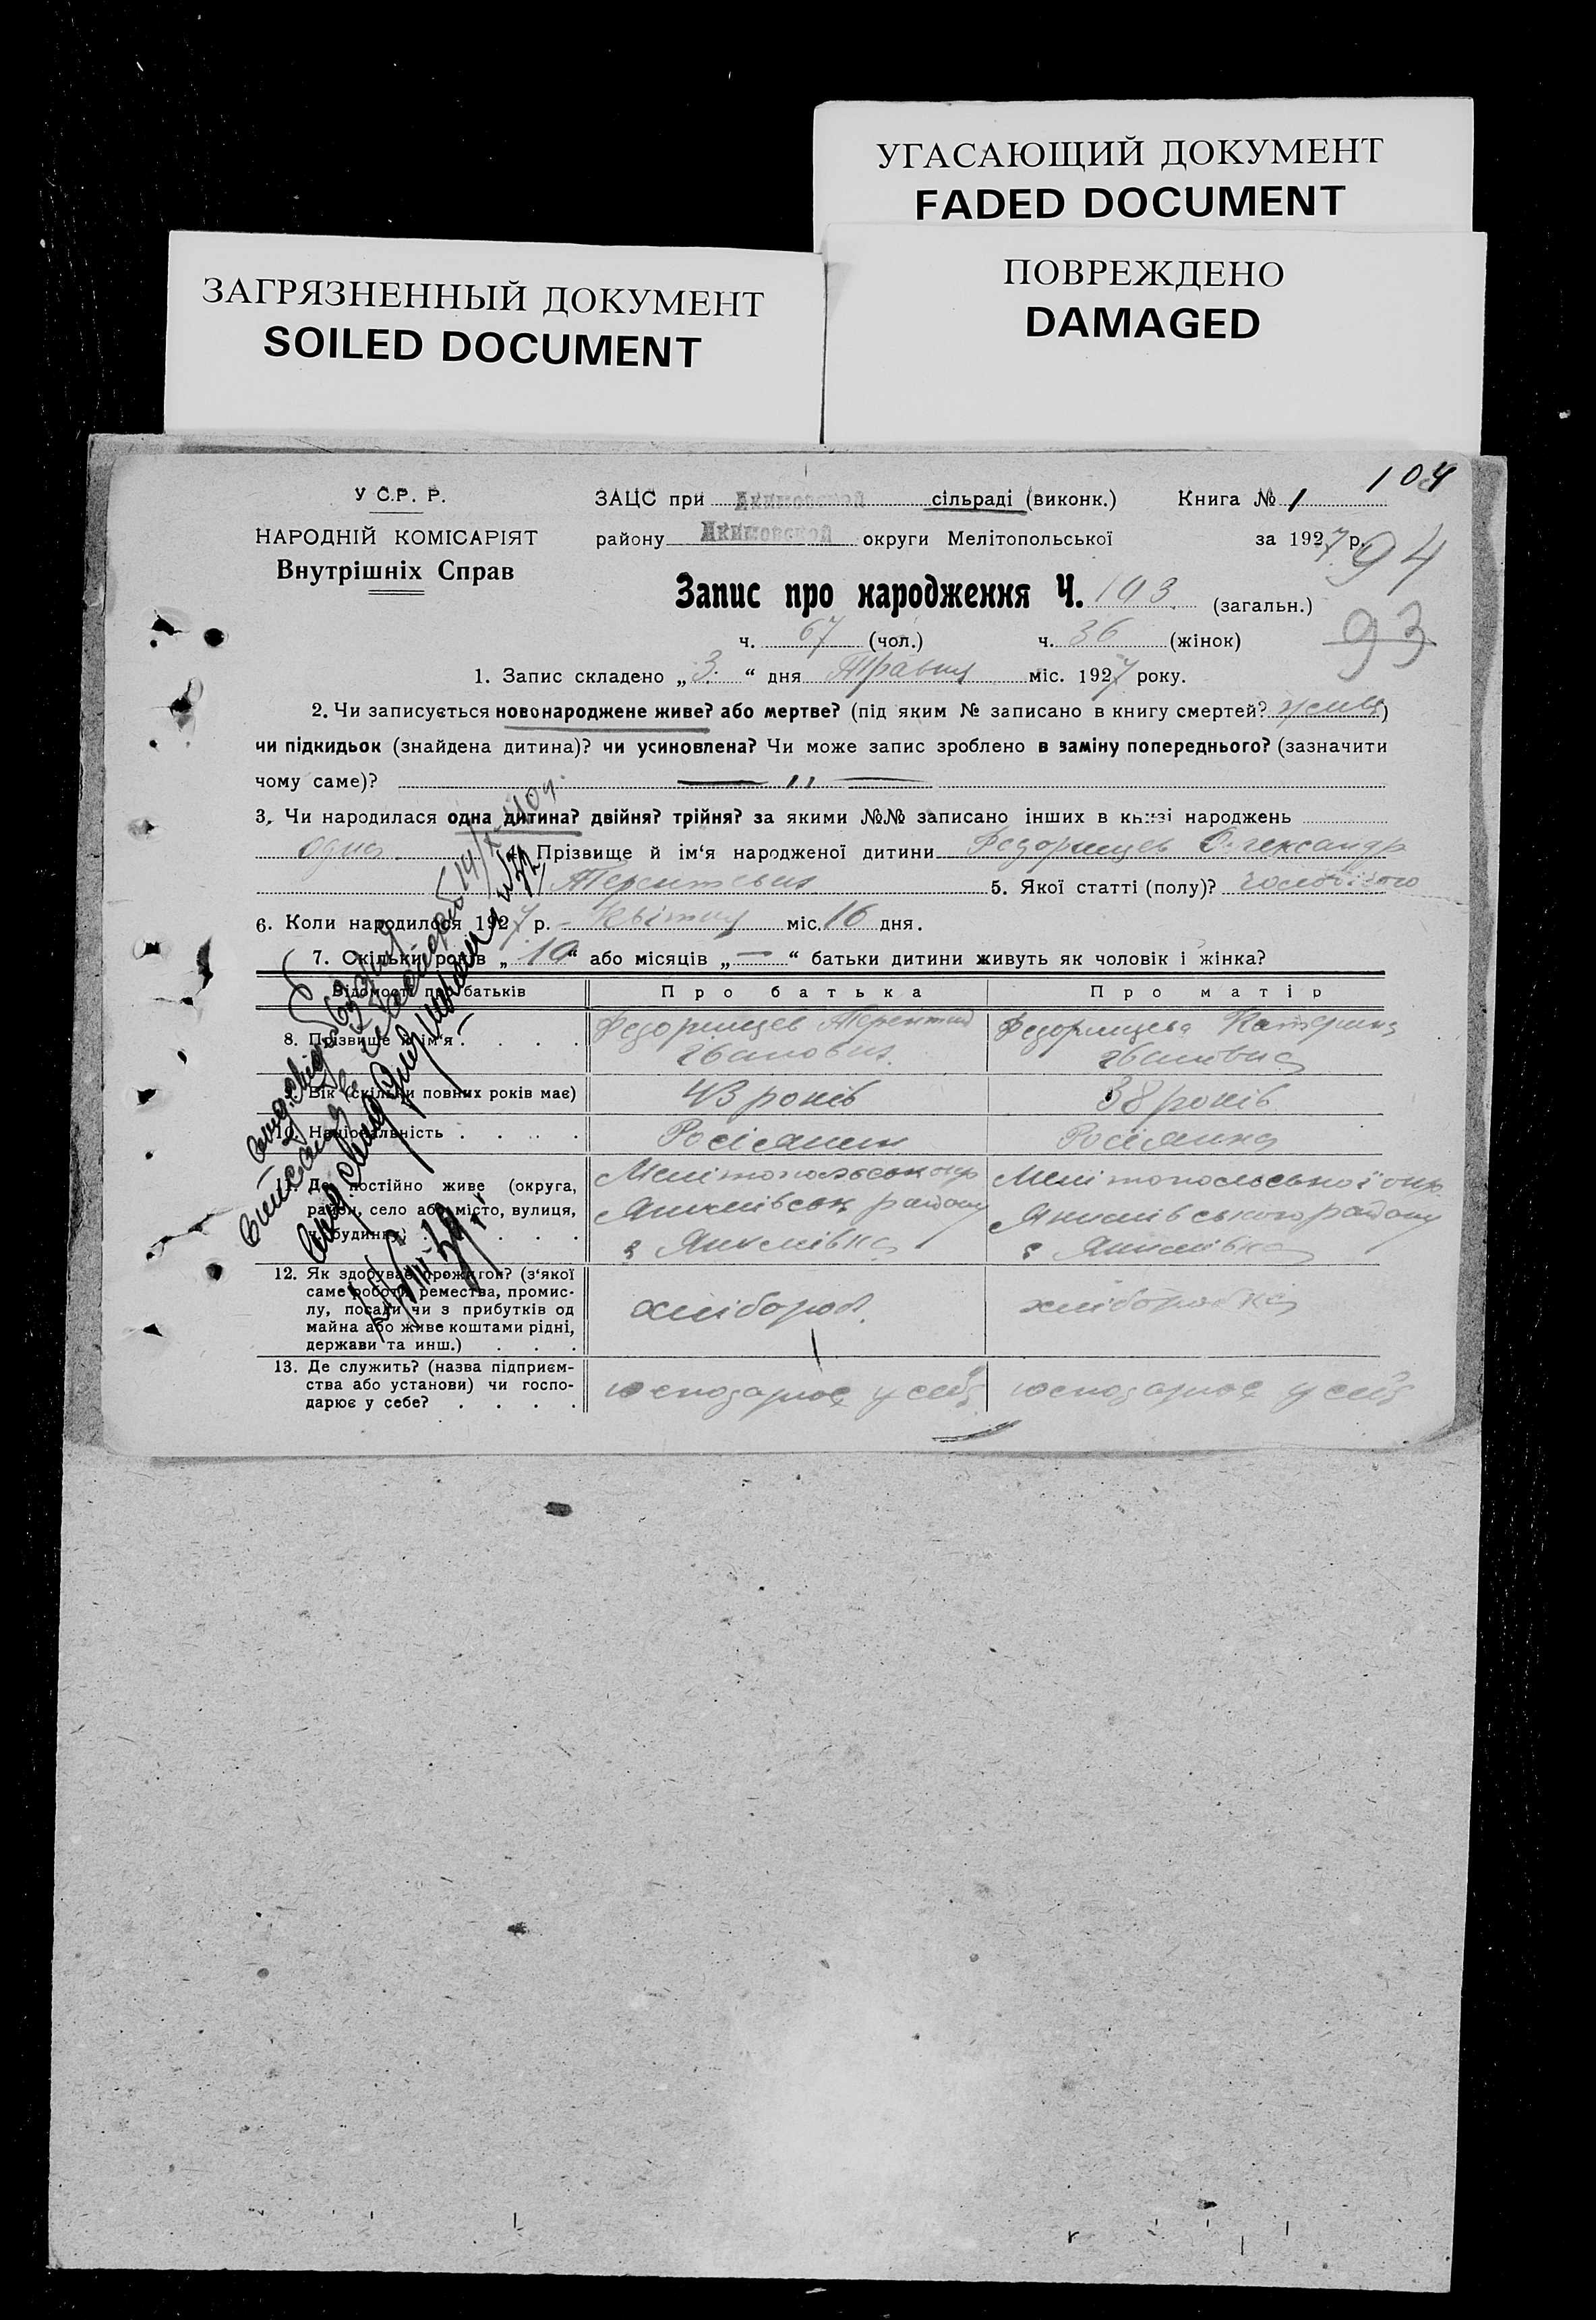 УГАСАЮЩИЙ ДОКУМЕНТ
FADED DOCUMENT
ЗАГРЯЗНЕННЫЙ ДОКУМЕНТ
SOILED DOCUMENT
ПОВРЕЖДЕНО
DAMAGED
104
У С.Р. Р.
НАРОДНІЙ КОМІСАРІЯТ
Внутрішніх Справ
ЗАЦС при Акимовской сільраді (виконк.) Книга № 1
району Акимовской округи Мелітопольської за 1927 р.
94
Запис про народження Ч. 103 (загальн.)
ч. 67 (чол.) ч. 36 (жінок)
93
1. Запис складено „3." дня Травня міс. 1927 року.
2. Чи записується новонароджене живе? або мертве? (під яким № записано в книгу смертей? живе)
чи підкидьок (знайдена дитина)? чи усиновлена? Чи може запис зроблено в заміну попереднього? (зазначити
чому саме)? — „ —
3. Чи народилася одна дитина? двійня? трійня? за якими №№ записано інших в книзі народжень
одна. 4. Прізвище й ім'я народженої дитини Федорищев Олександр
Терентевич 5. Якої статті (полу)? чоловічого
6. Коли народилося 1927 р. – Квітня міс. 16 дня.
7. Скільки років „10" або місяців „—" батьки дитини живуть як чоловік і жінка?
Відомості про батьків Про батька Про матір
8. Прізвище й ім'я . . . . Федорищев Терентий Федорищева Катерина
Іванович. Івановна
Вік (скільки повних років має) 43 років 38 років
10. Національність . . . . Росіянин Росіянка
11. Де постійно живе (округа, Мелітопольськ окр Мелітопольської окр
район, село або місто, вулиця, Якимівськ району Якимівського району
ч. будинку) . . . . с Якимівка с Якимівка
12. Як здобуває прожиток? (з'якої
саме роботи, ремества, промис-
лу, посади чи з прибутків од хлібороб. хліборобка
майна або живе коштами рідні,
держави та инш.) . . .
13. Де служить? (назва підприєм-
ства або установи) чи госпо- господарює у себе господарює у себе
дарює у себе? . . . .